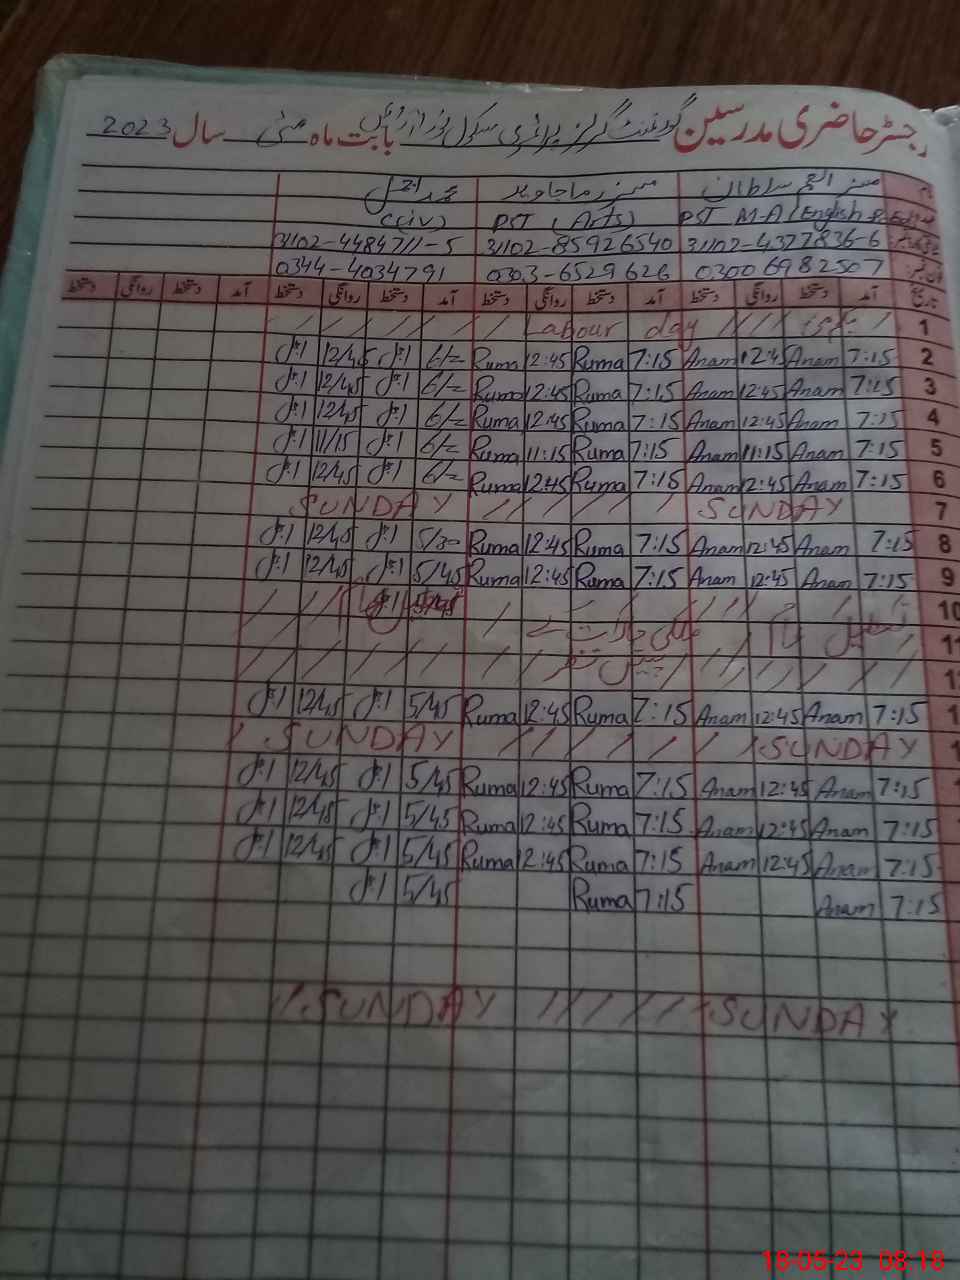 رجسٹر حاضری مدرسین گورنمنٹ گرلز پرائمری سکول بابت ماہ مئی سال 2023
نام مسز انعم سلطان مسز رما جاوید محمد اجمل
PST M-A (English PST (Arts) (C-iv)
31102-4377836-6 31102-85926540 31102-4484711-5
0300 6982507 0303-6529626 0344-4034791
تاریخ آمد دستخط روانگی دستخط آمد دستخط روانگی دستخط آمد دستخط روانگی دستخط آمد دستخط روانگی دستخط
1 Labour day
2 7:15 Anam 12:45 Anam 7:15 Ruma 12:45 Ruma 6/= 12/45
3 7:15 Anam 12:45 Anam 7:15 Ruma 12:45 Ruma 6/= 12/45
4 7:15 Anam 12:45 Anam 7:15 Ruma 12:45 Ruma 6/= 12/45
5 7:15 Anam 11:15 Anam 7:15 Ruma 11:15 Ruma 6/= 11/15
6 7:15 Anam 12:45 Anam 7:15 Ruma 12:45 Ruma 6/= 12/45
7 SUNDAY SUNDAY
8 7:15 Anam 12:45 Anam 7:15 Ruma 12:45 Ruma 5/30 12/45
9 7:15 Anam 12:45 Anam 7:15 Ruma 12:45 Ruma 5/45 12/45
10 5/45
11 تعطیل ملکی حالات کے
1 پیش نظر
1 7:15 Anam 12:45 Anam 7:15 Ruma 12:45 Ruma 5/45 12/45
1 SUNDAY SUNDAY
7:15 Anam 12:45 Anam 7:15 Ruma 12:45 Ruma 5/45 12/45
7:15 Anam 12:45 Anam 7:15 Ruma 12:45 Ruma 5/45 12/45
7:15 Anam 12:45 Anam 7:15 Ruma 12:45 Ruma 5/45 12/45
7:15 Anam 7:15 Ruma 5/45
SUNDAY SUNDAY
18-05-23 08:18